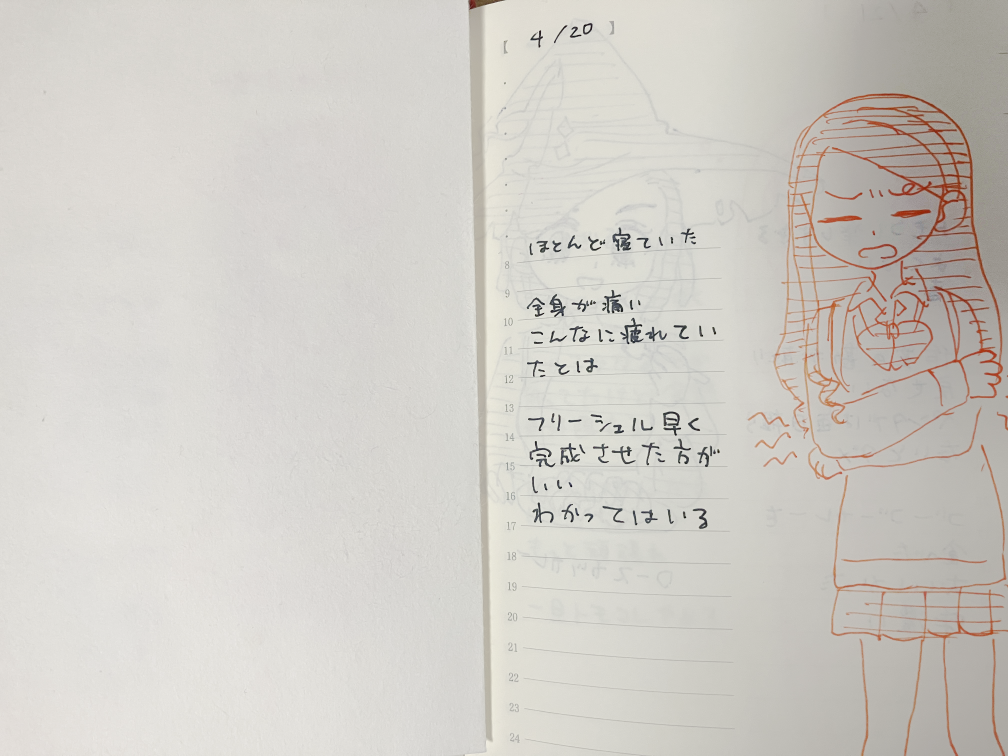 [ 4/20 ]
8
9
10
11
12
13
14
15
16
17
18
19
20
21
22
23
24
ほとんど寝ていた
全身が痛い
こんなに疲れてい
たとは
フリーシェル早く
完成させた方が
いい
わかってはいる